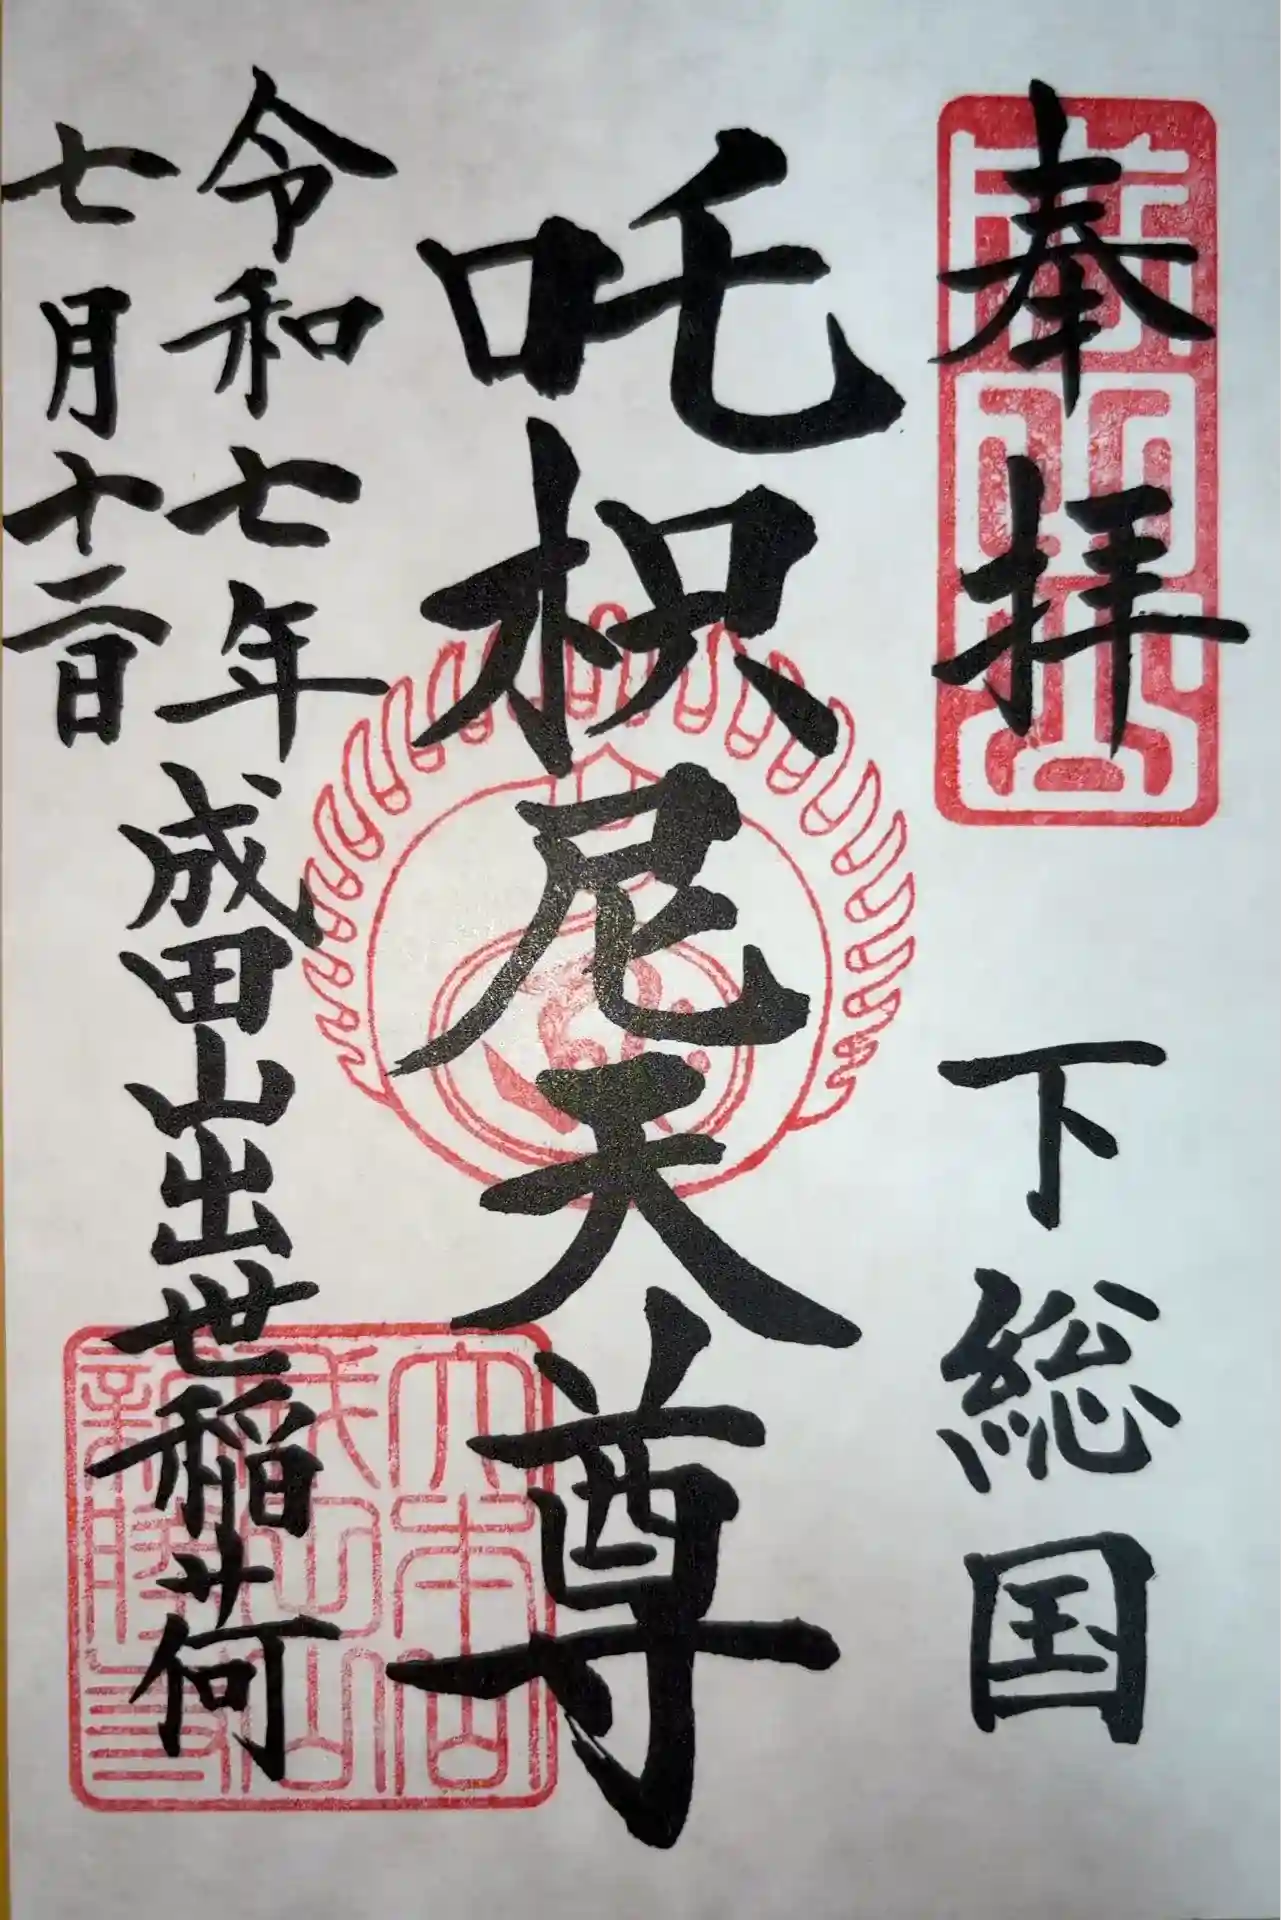 奉拝
下総国
吒枳尼天尊
成田山出世稲荷
令和七年
七月十二日
成田山